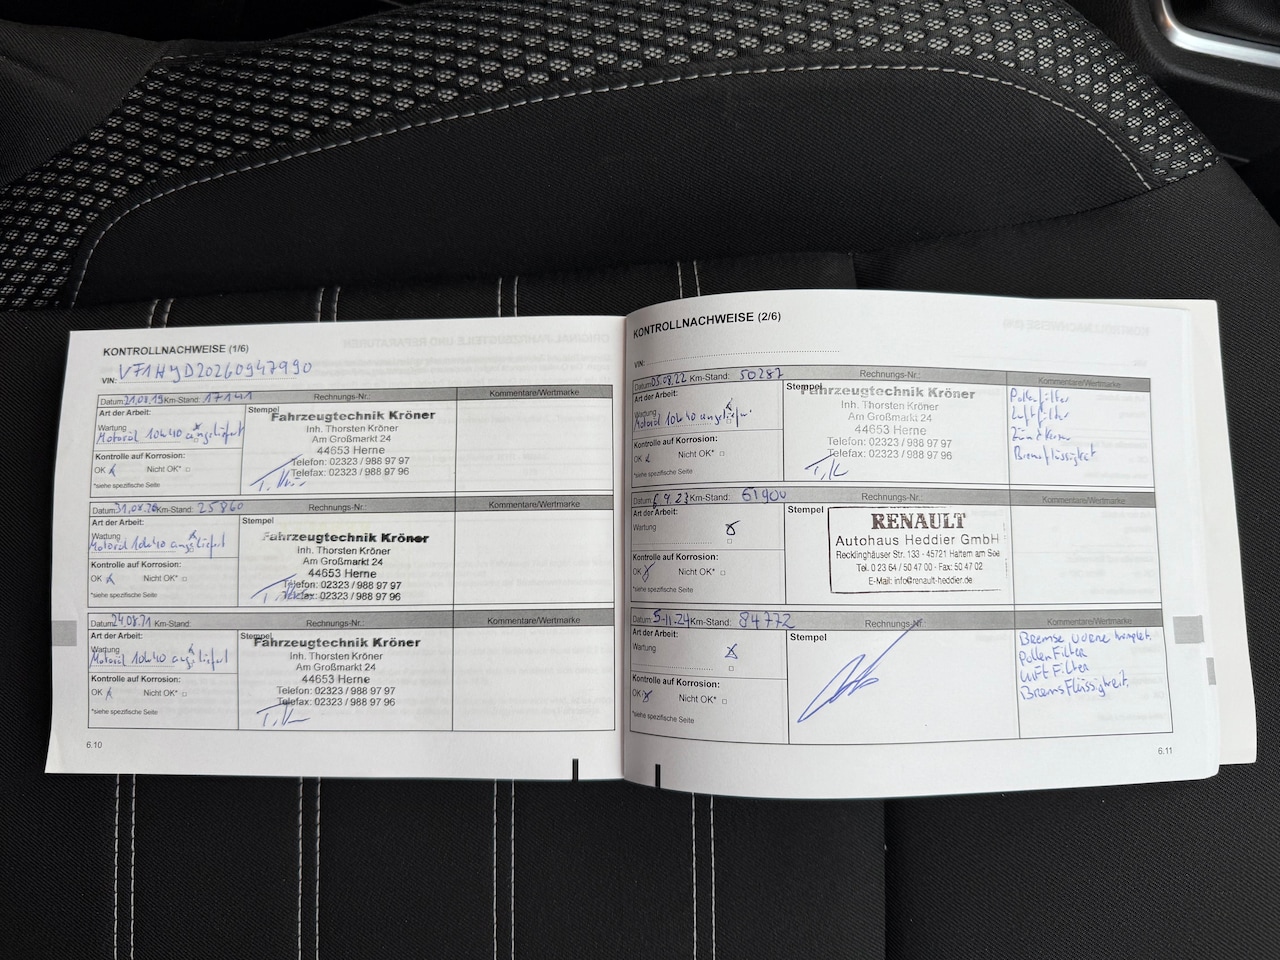 KONTROLLNACHWEISE (1/6)
VIN: VF1HJD20260947990
Datum: 21.08.19 Km-Stand: 17141 Rechnungs-Nr.: Kommentare/Wertmarke
Art der Arbeit:
Wartung
Motoröl 10W40 angeliefert
Kontrolle auf Korrosion:
OK Nicht OK*
*siehe spezifische Seite
Stempel
Fahrzeugtechnik Kröner
Inh. Thorsten Kröner
Am Großmarkt 24
44653 Herne
Telefon: 02323 / 988 97 97
Telefax: 02323 / 988 97 96
Datum: 31.08.20 Km-Stand: 25860 Rechnungs-Nr.: Kommentare/Wertmarke
Art der Arbeit:
Wartung
Motoröl 10W40 angeliefert
Kontrolle auf Korrosion:
OK Nicht OK*
*siehe spezifische Seite
Stempel
Fahrzeugtechnik Kröner
Inh. Thorsten Kröner
Am Großmarkt 24
44653 Herne
Telefon: 02323 / 988 97 97
Telefax: 02323 / 988 97 96
Datum: 24.08.21 Km-Stand: Rechnungs-Nr.: Kommentare/Wertmarke
Art der Arbeit:
Wartung
Motoröl 10W40 angeliefert
Kontrolle auf Korrosion:
OK Nicht OK*
*siehe spezifische Seite
Stempel
Fahrzeugtechnik Kröner
Inh. Thorsten Kröner
Am Großmarkt 24
44653 Herne
Telefon: 02323 / 988 97 97
Telefax: 02323 / 988 97 96
6.10
KONTROLLNACHWEISE (2/6)
VIN:
Datum: 05.08.22 Km-Stand: 50287 Rechnungs-Nr.: Kommentare/Wertmarke
Art der Arbeit:
Wartung
Motoröl 10W40 angeliefert
Kontrolle auf Korrosion:
OK Nicht OK*
*siehe spezifische Seite
Stempel
Fahrzeugtechnik Kröner
Inh. Thorsten Kröner
Am Großmarkt 24
44653 Herne
Telefon: 02323 / 988 97 97
Telefax: 02323 / 988 97 96
Pollenfilter
Luftfilter
Zündkerzen
Bremsflüssigkeit
Datum: 6.9.23 Km-Stand: 61900 Rechnungs-Nr.: Kommentare/Wertmarke
Art der Arbeit:
Wartung
Kontrolle auf Korrosion:
OK Nicht OK*
*siehe spezifische Seite
Stempel
RENAULT
Autohaus Heddier GmbH
Recklinghäuser Str. 133 · 45721 Haltern am See
Tel. 0 23 64 / 50 47 00 · Fax: 50 47 02
E-Mail: info@renault-heddier.de
Datum: 5-11.24 Km-Stand: 84772 Rechnungs-Nr.: Kommentare/Wertmarke
Art der Arbeit:
Wartung
Kontrolle auf Korrosion:
OK Nicht OK*
*siehe spezifische Seite
Stempel
Bremse vorne komplet.
Pollen Filter
Luft Filter
Brems Flüssigkeit.
6.11